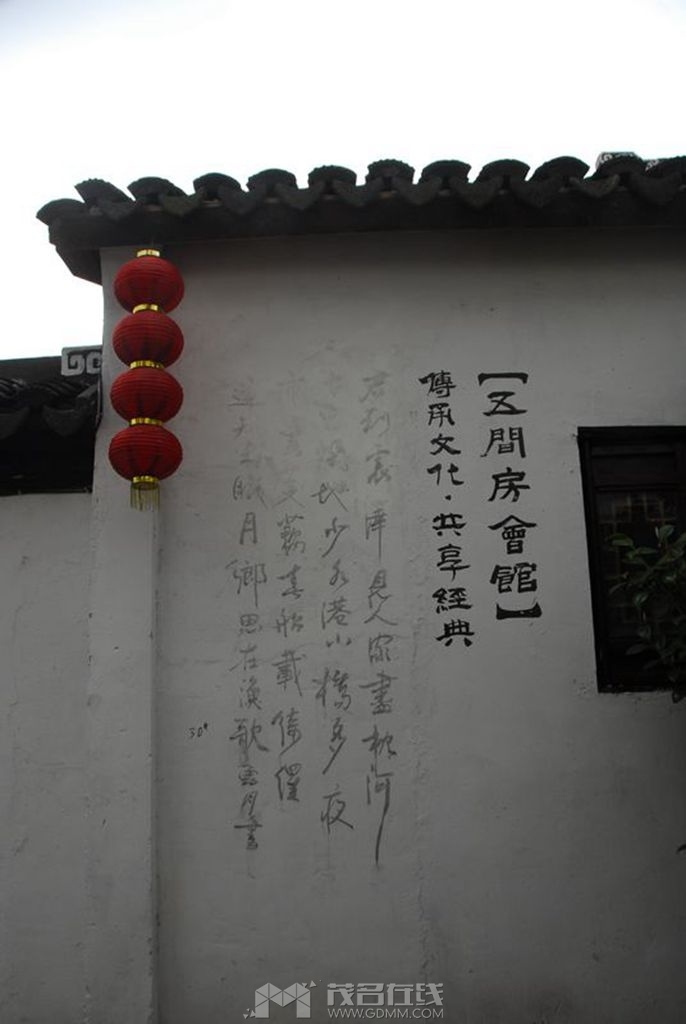 【五間房會館】
傳承文化·共享經典
君到 見人家盡枕河
古宮閑地少水港小橋多夜
市賣菱藕春船載綺羅
遥知未眠月鄉思在漁歌 書
30#
茂名在线
WWW.GDMM.COM